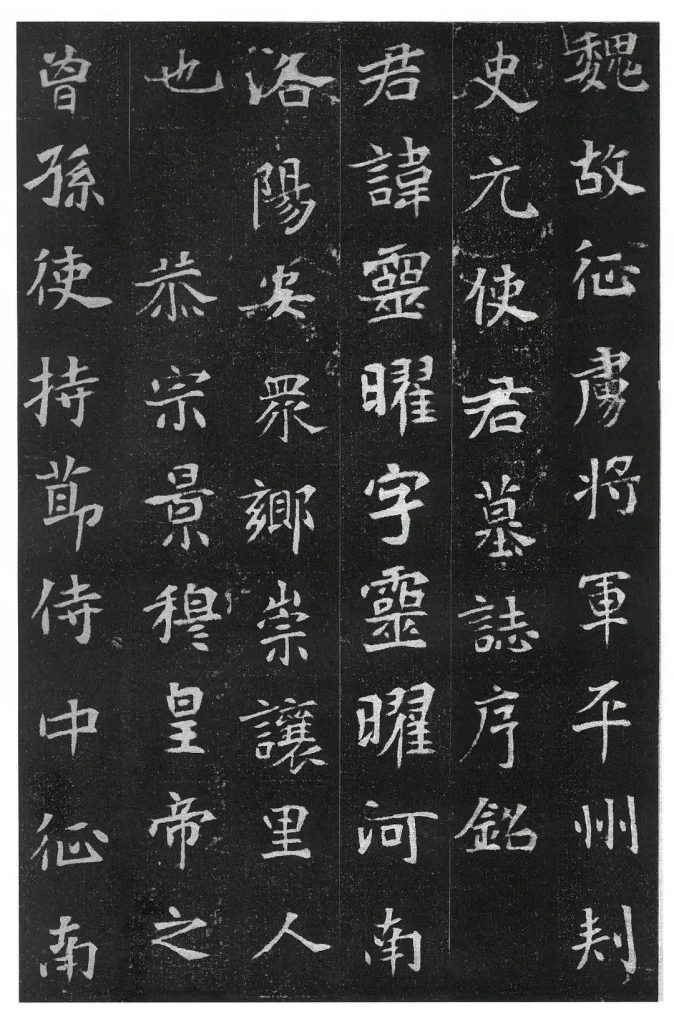 魏故征虜將軍平州刾
史元使君墓誌序銘
君諱靈曜字靈曜河南
洛陽安眾鄉崇讓里人
也 恭宗景穆皇帝之
曾孫使持節侍中征南